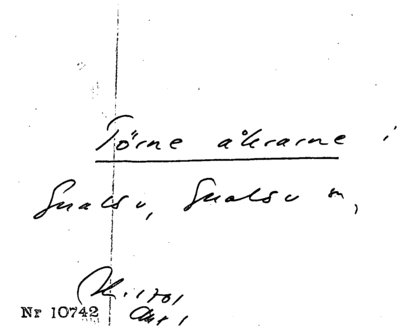 Törne åkrarne i
Gualsv, Gualsv m,
K. 1701
Akt 1
Nr 10742